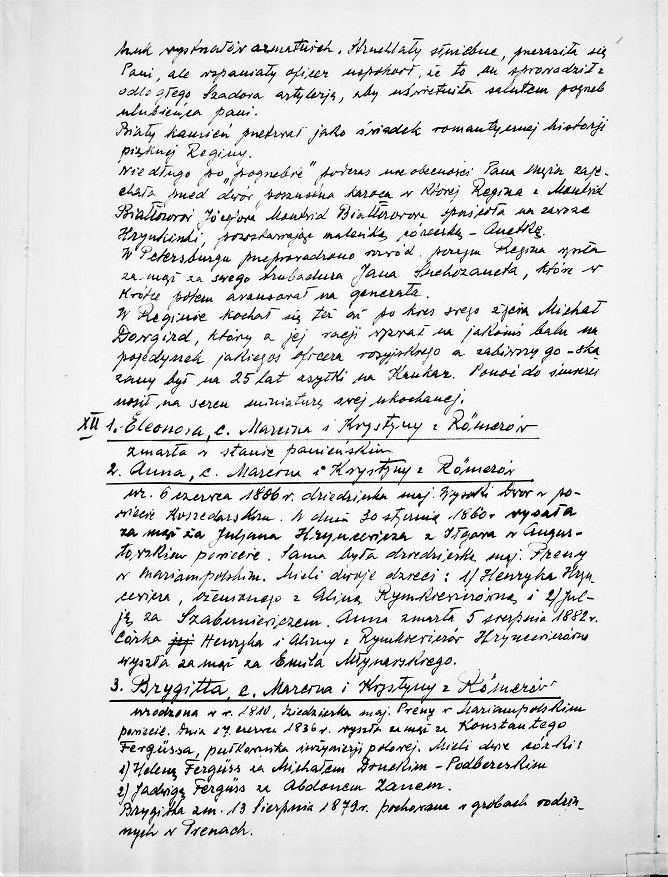 huk wystrzałów armatnich. Struchlały służbne, przeraziła się
Pani, ale wspaniały oficer uspokoił, że to on sprowadził z
odległego Szadowa artylerję, aby uświetniła salutem pogrzeb
ulubieńca pani.
Biały kamień przetrwał jako świadek romantycznej historji
pięknej Reginy.
Niedługo po „pogrzebie" podczas nieobecności Pana Męża zaje-
chała przed dwór poszóstna kareca w której Regina z Montrid
Białłozorów Józefowa Montrid Białłozorowa opuściła na zawsze
Hrynkinki, pozostawiając maleńką córeczkę - Anetkę.
W Petersburgu przeprowadzono rozwód, poczym Regina wyszła
za mąż za swego trubadura Jana Suchozaneta, które w
krótce potem awansował na generała.
W Reginie kochał się też aż po kres swego życia Michał
Dowgird, który z jej racji wyzwał na jakimś balu na
pojedynek jakiegoś oficera rosyjskiego a zabiwszy go - ska
zany był na 25 lat zsyłki na Kaukaz. Ponoć do śmierci
nosił na sercu miniaturę swej ukochanej.
XII 1. Eleonora, c. Marcina i Krystyny z Römerów
zmarła w stanie panieńskim
2. Anna, c. Marcina i Krystyny z Römerów
ur. 6 czerwca 1806 r. dziedziczka maj. Wysoki Dwór w po-
wiecie Koszedarskim. W dniu 30 stycznia 1860 r wyszła
za mąż za Juljana Hryncewicza z Iłgowa w Augus-
towskim powiecie. Sama była dziedziczką maj. Preny
w Mariampolskim. Mieli dwoje dzieci: 1) Henryka Hryn
cewicza, ożenionego z Aliną Rymkiewiczówną i 2) Jul-
ją za Szabuniewiczem. Anna zmarła 5 sierpnia 1882 r.
Córka jej Henryka i Aliny z Rymkiewiczów Hryncewiczówna
wyszła za mąż za Emila Młynarskiego.
3. Brygitta, c. Marcina i Krystyny z Römerów
urodzona w r. 1810, dziedziczka maj. Preny w Mariampolskim
powiecie. Dnia 17 czerwca 1836 r. wyszła za mąż za Konstantego
Fergüssa, pułkownika inżynierji polowej. Mieli dwie córki:
1) Helenę Fergüss za Michałem Druckim - Podbereskim
2) Jadwigę Fergüss za Abdonem Zanem.
Brygitta zm. 13 sierpnia 1879 r. pochowana w grobach rodzin-
nych w Prenach.